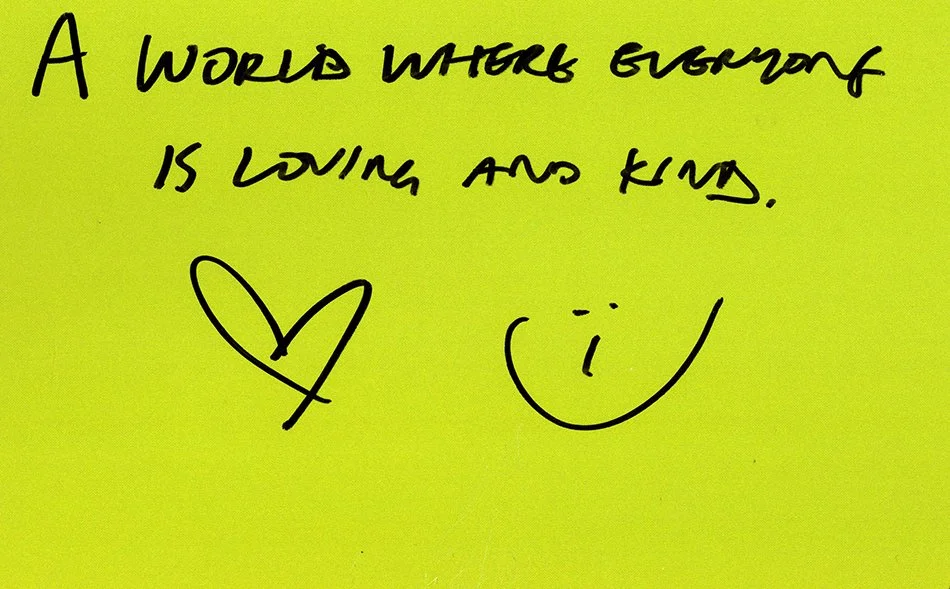 A WORLD WHERE EVERYONE
IS LOVING AND KIND.